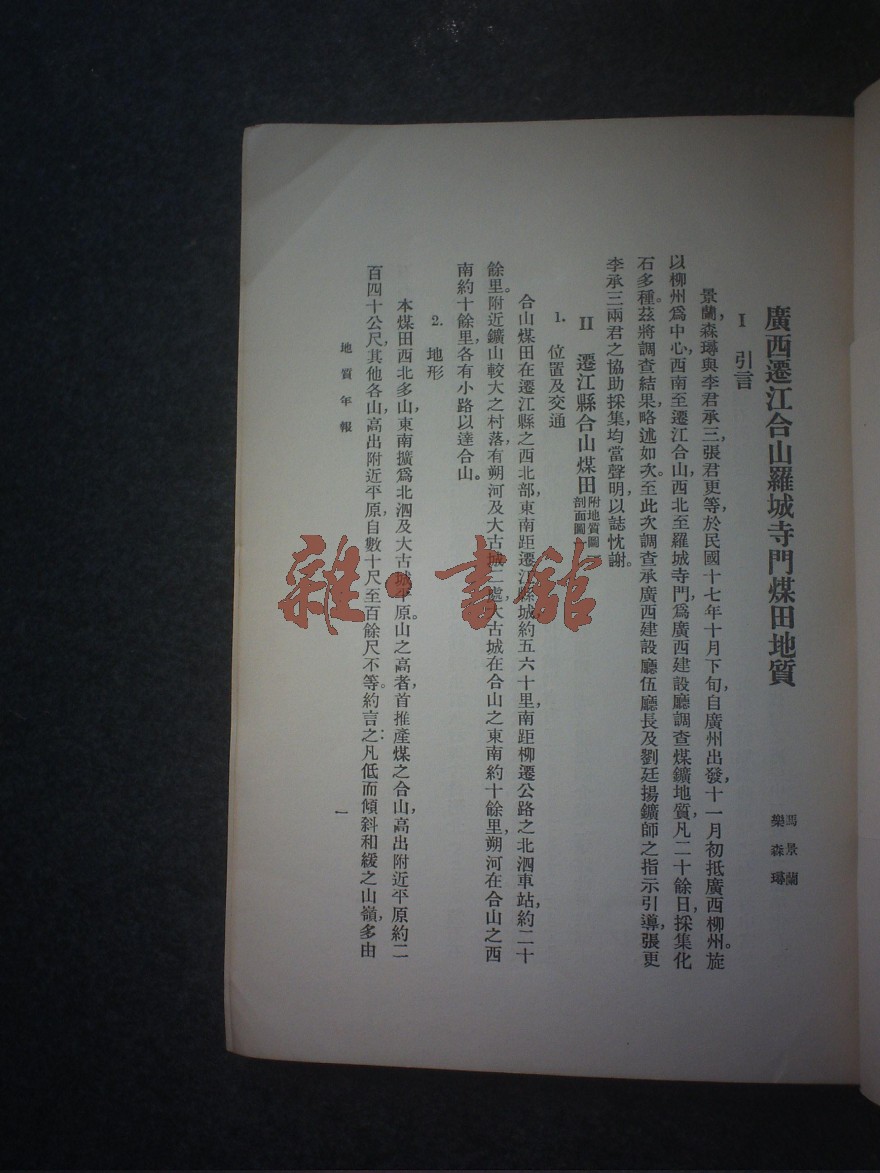 廣西遷江合山羅城寺門煤田地質
馮景蘭
樂森璕
I 引言
景蘭,森璕與李君承三,張君更等,於民國十七年十月下旬自廣州出發,十一月初抵廣西柳州。旋
以柳州爲中心,西南至遷江合山,西北至羅城寺門,爲廣西建設廳調查煤鑛地質,凡二十餘日,採集化
石多種。茲將調查結果,略述如次。至此次調查承廣西建設廳伍廳長及劉廷揚鑛師之指示引導,張更
李承三兩君之協助採集,均當聲明,以誌忱謝。
II 遷江縣合山煤田 附地質圖一
剖面圖
1. 位置及交通
合山煤田在遷江縣之西北部,東南距遷江縣城約五六十里,南距柳遷公路之北泗車站,約二十
餘里。附近鑛山較大之村落,有朔河及大古城二處,大古城在合山之東南約十餘里,朔河在合山之西
南約十餘里,各有小路以達合山。
2. 地形
本煤田西北多山,東南擴爲北泗及大古城平原。山之高者,首推產煤之合山,高出附近平原約二
百四十公尺,其他各山,高出附近平原,自數十尺至百餘尺不等。約言之:凡低而傾斜和緩之山嶺,多由
地質年報
一
雜·書館